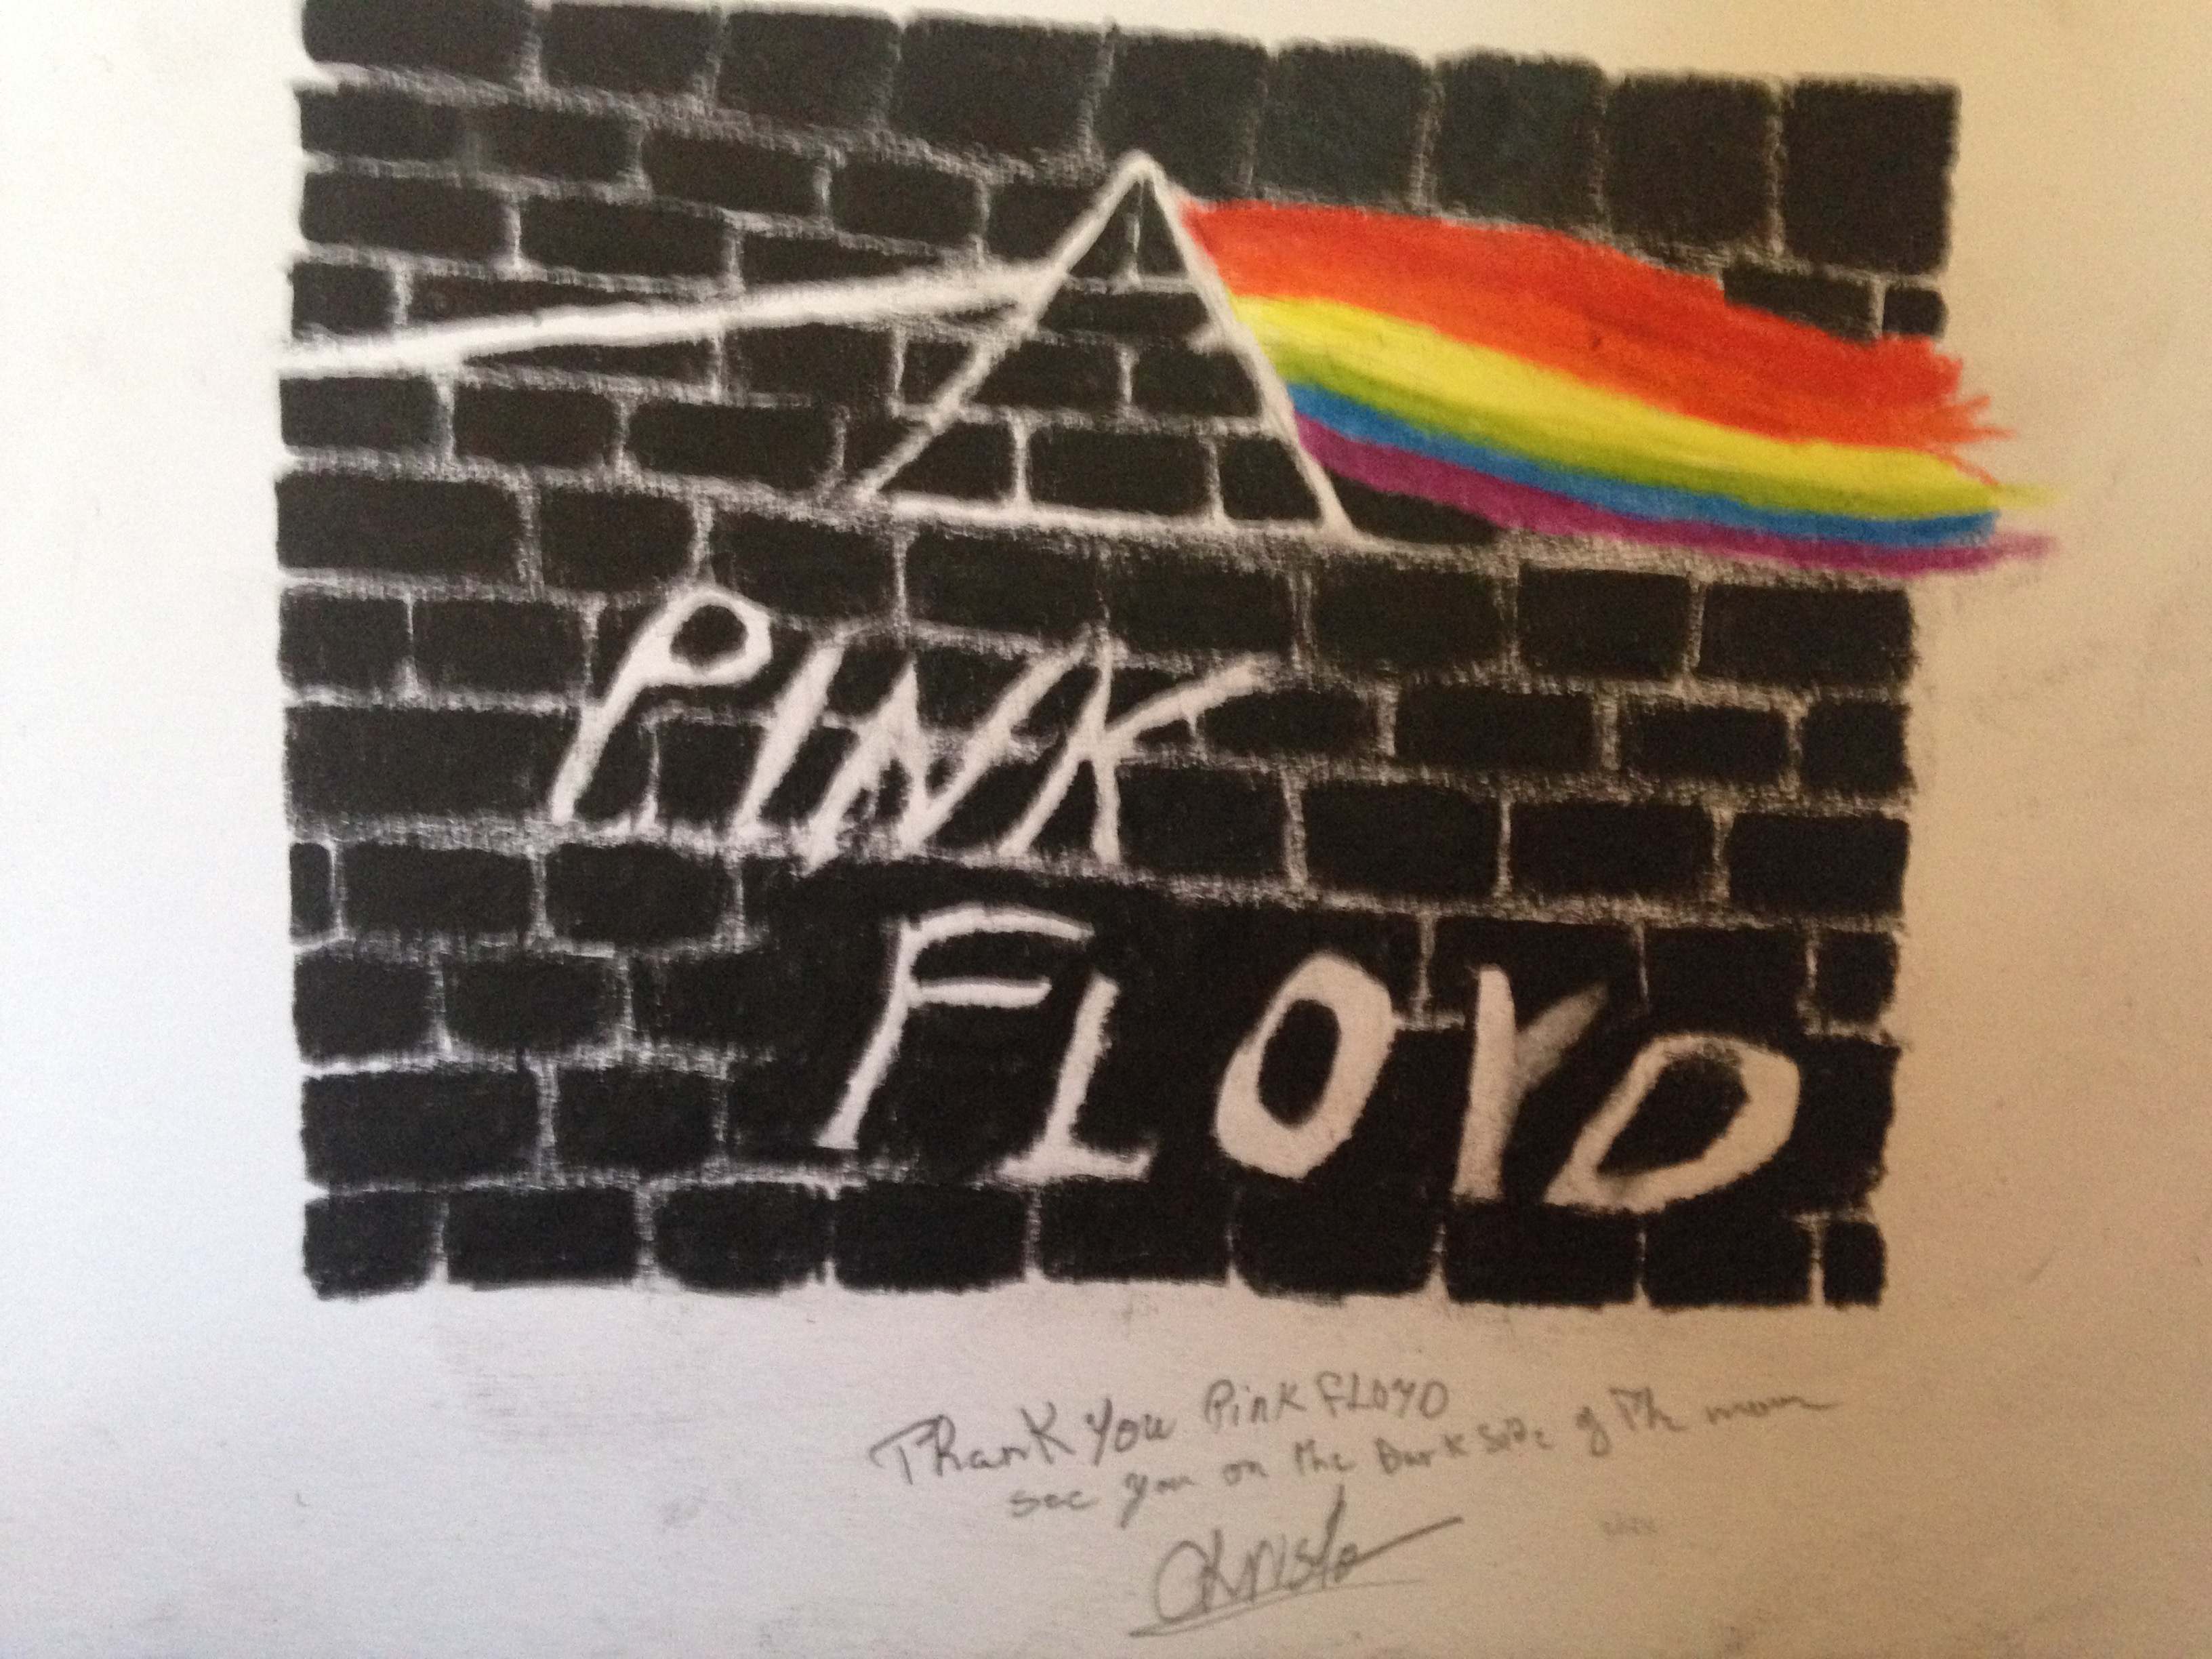 PINK
FLOYD
Thank You Pink FLOYD
see you on the Dark Side of The moon
Christo